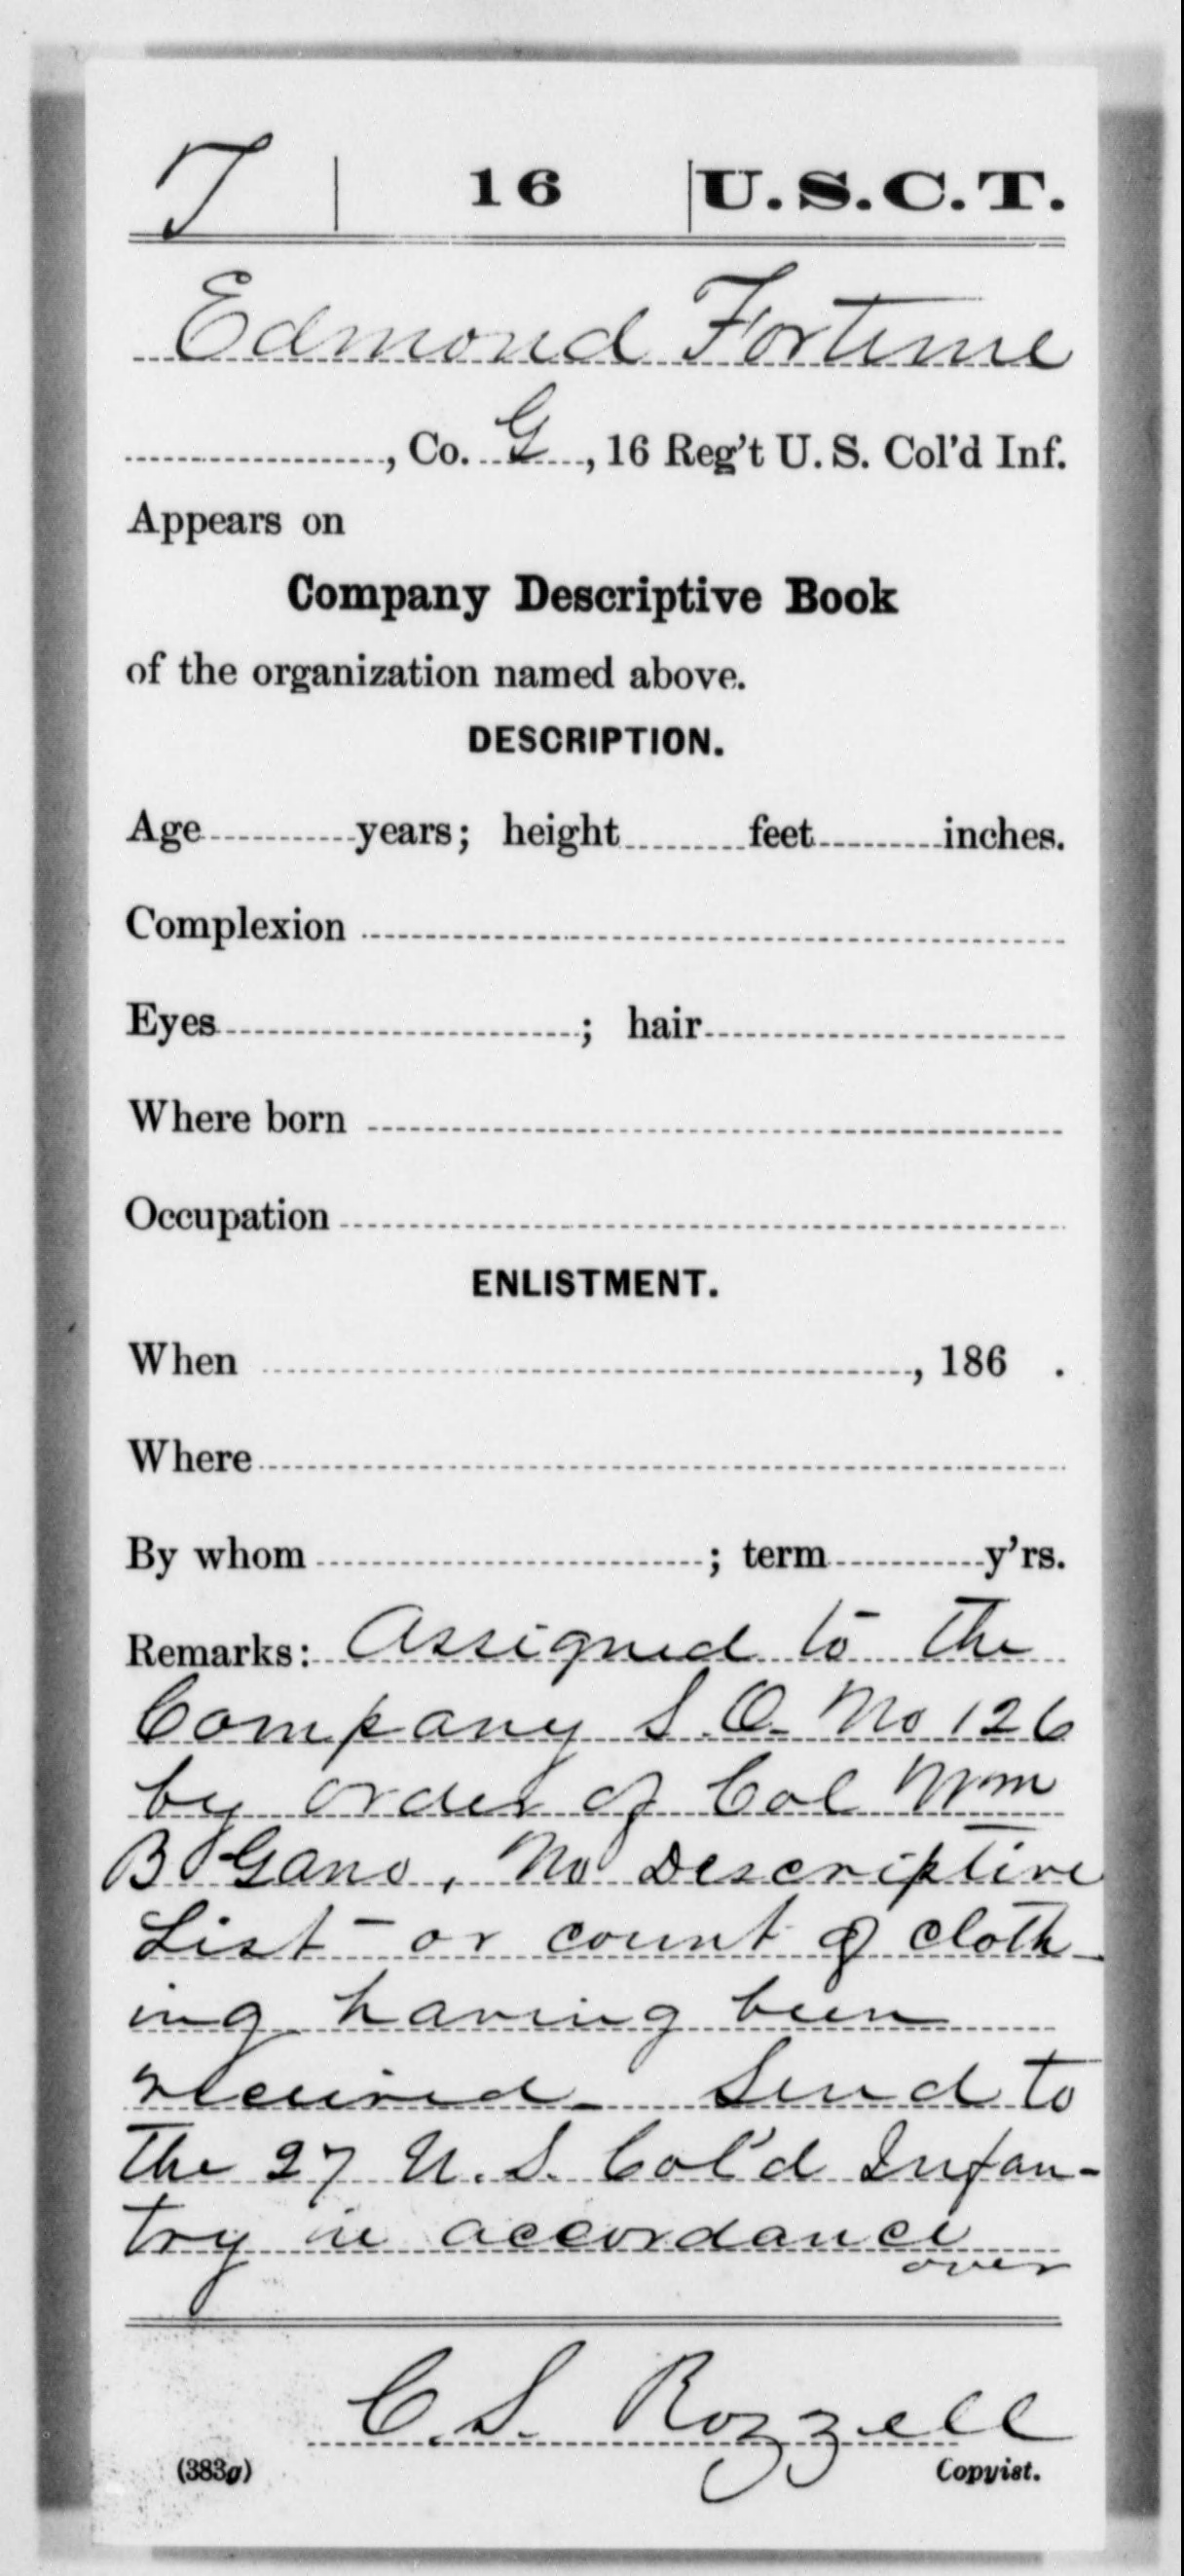 F | 16 | U.S.C.T.
Edmond Fortune
, Co. G, 16 Reg't U. S. Col'd Inf.
Appears on
Company Descriptive Book
of the organization named above.
DESCRIPTION.
Age years; height feet inches.
Complexion
Eyes ; hair
Where born
Occupation
ENLISTMENT.
When , 186 .
Where
By whom ; term y'rs.
Remarks: Assigned to the
Company S. O. No 126
by order of Col Wm
B Gano, No Descriptive
List - or count of cloth-
ing having been
received - Send to
the 27 U. S. Col'd Infan-
try in accordance
over
C. S. Rozzell
(383g) Copyist.